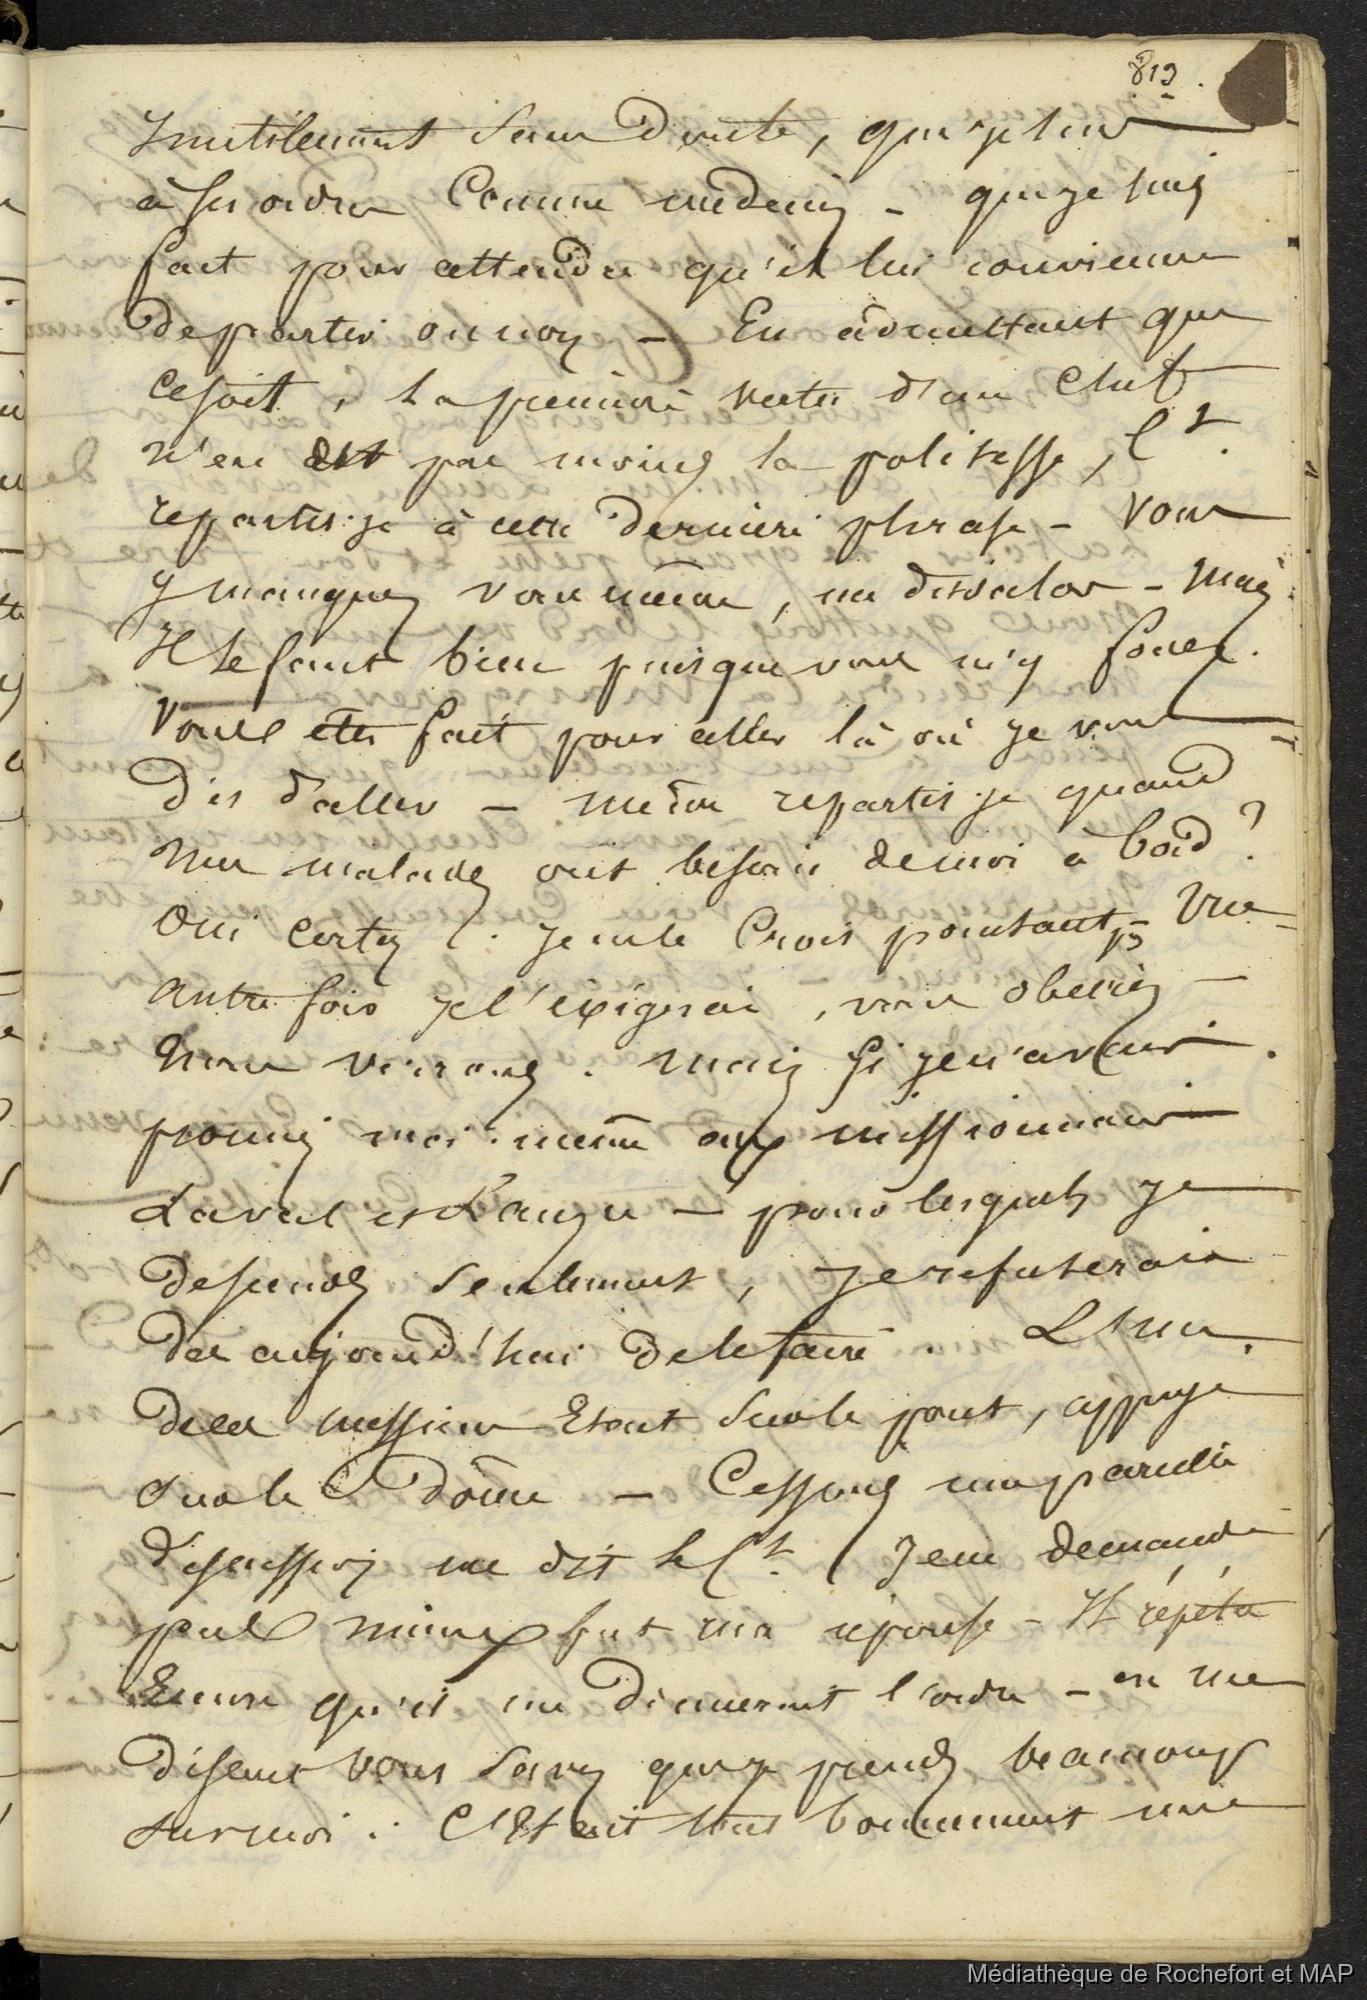 819.
Inutilement sans doute, que je suis
à ses ordres Comme médecin - que je suis
fait pour attendre qu'il lui convienne
de partir ou non - En admettant que
ce soit, la première vertu d'un Chef
n'en est pas moins la politesse, Ct.
repartis-je à cette dernière phrase - Vous
y manquez vous même, me dit-il alors - Mais
Il le faut bien puisque vous m'y forcez.
Vous etes fait pour aller là où je vous
dis d'aller - même repartis-je quand
mes malades ont besoin de moi à bord ?
Oui certes. Je ne le Crois pourtant pas Une
autre fois je l'éxigerai, vous obeirez -
Nous verrons. Mais si je n'avais
promis moi-même aux missionnaires
Laval et - pour lesquels je
descends seulement, je refuserais
dès aujourd'hui de le faire. L'une
de ces messieurs Etait sur le pont, appuyé
sur le Dôme - Cessons une pareille
discussion me dit le Ct. Je ne demande
pas mieux fut ma réponse - Il répéta
Encore qu'il me donnerait l'ordre - en me
disant vous savez que je prends beaucoup
sur moi : C'Etait tout bonnement une
Médiathèque de Rochefort et MAP